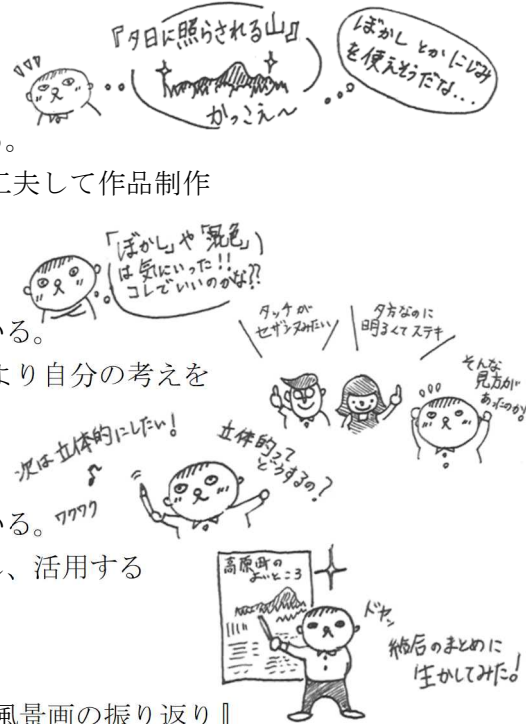 『夕日に照らされる山』
かっこえ〜
ぼかし とか にじみ
を使えそうだな...
る。
工夫して作品制作
「ぼかし」や「混色」
は気にいった!!
コレでいいのかな??
いる。
より自分の考えを
タッチが
セザンヌみたい
夕方なのに
明るくてステキ
そんな
見方が
あったのか!
次は立体的にしたい!
ワクワク
立体的って
どうするの?
いる。
、活用する
高原町の
よいところ
ドヤッ
総合のまとめに
生かしてみた!
風景画の振り返り』